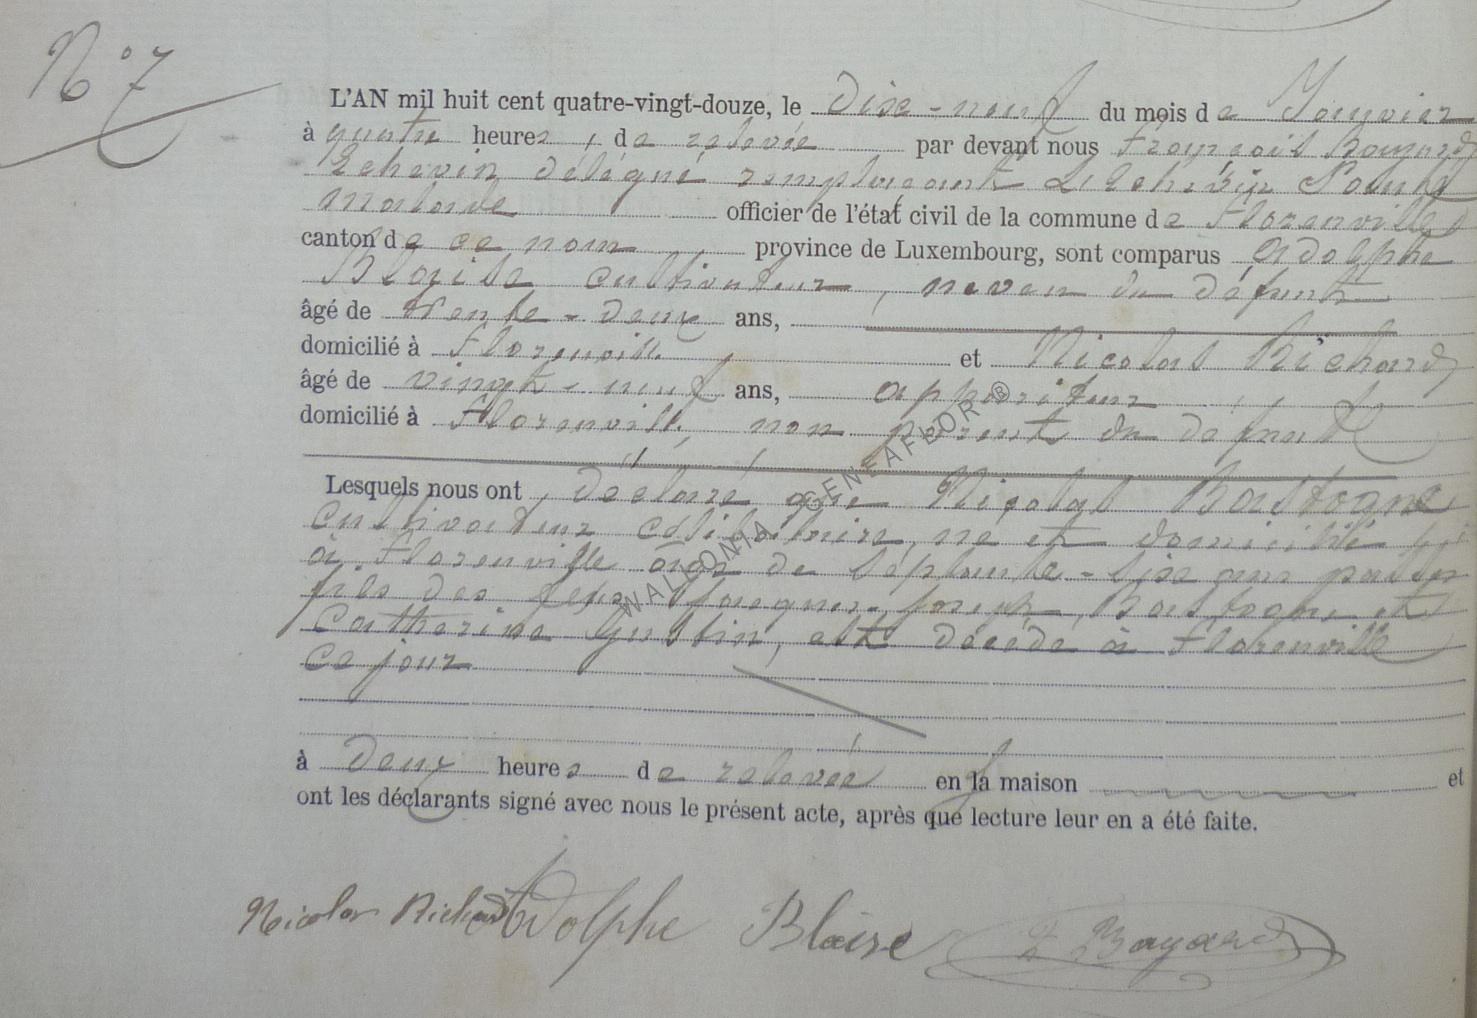 N° 7
L'AN mil huit cent quatre-vingt-douze, le dix-neuf du mois de Janvier
à quatre heures, de relevée par devant nous François Bayard
Echevin délégué remplaçant L'Echevin
malade officier de l'état civil de la commune de Florenville
canton de ce nom province de Luxembourg, sont comparus Adolphe
Blaise cultivateur, neveu du défunt
âgé de trente-deux ans,
domicilié à Florenville, et Nicolas Richard
âgé de vingt-neuf ans,
domicilié à Florenville, non parent du défunt
Lesquels nous ont déclaré que Nicolas Bastogne
cultivateur célibataire, né et domicilié
à Florenville âgé de septante-six ans passés
fils des feus Jacques-Joseph Bastogne et
Catherine Justin, est décédé à Florenville
ce jour
à deux heures de relevée en sa maison et
ont les déclarants signé avec nous le présent acte, après que lecture leur en a été faite.
Nicolas Richard Adolphe Blaise F Bayard
WALLONIA GENEAFLOR ®